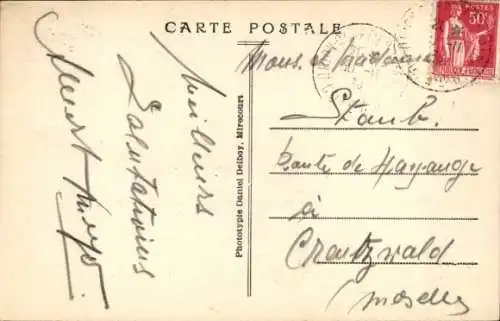 CARTE POSTALE
Meilleurs
Salutations
Phototypie Daniel Delboy, Mirecourt
POSTES
50c
Mons. et Madame
Staub.
Route de Hayange
à
Creutzwald
(Moselle)